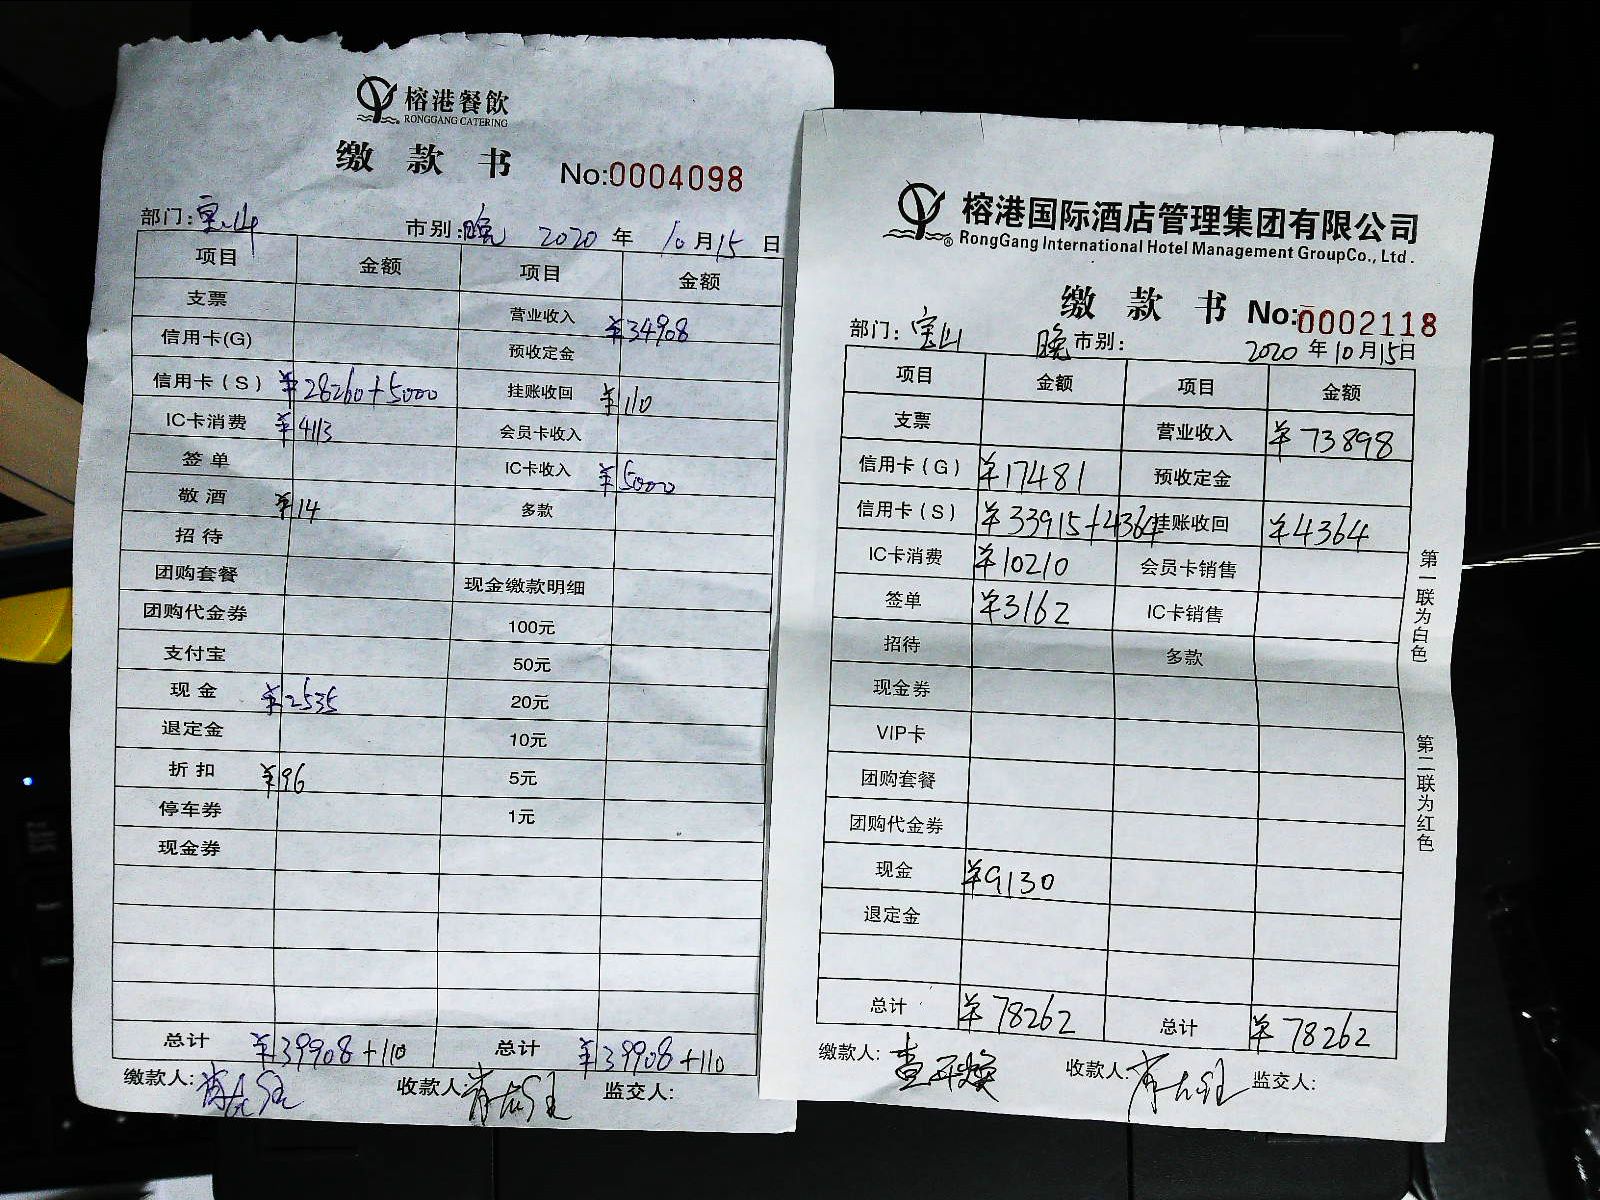 榕港餐饮
RONGGANG CATERING
缴款书 No:0004098
部门:宝山 市别:晚 2020年10月15日
项目 金额 项目 金额
支票 营业收入 ¥34908
信用卡(G) 预收定金
信用卡(S) ¥28260+5000 挂账收回 ¥110
IC卡消费 ¥4113 会员卡收入
签单 IC卡收入 ¥5000
敬酒 ¥14 多款
招待
团购套餐 现金缴款明细
团购代金券 100元
支付宝 50元
现金 ¥2535 20元
退定金 10元
折扣 ¥96 5元
停车券 1元
现金券
总计 ¥39908+110 总计 ¥39908+110
缴款人: 收款人: 监交人:
榕港国际酒店管理集团有限公司
RongGang International Hotel Management GroupCo., Ltd.
缴款书 No:0002118
部门:宝山 晚市别: 2020年10月15日
项目 金额 项目 金额
支票 营业收入 ¥73898
信用卡(G) ¥17481 预收定金
信用卡(S) ¥33915+4364 挂账收回 ¥4364
IC卡消费 ¥10210 会员卡销售
签单 ¥3162 IC卡销售
招待 多款
现金券
VIP卡
团购套餐
团购代金券
现金 ¥9130
退定金
总计 ¥78262 总计 ¥78262
缴款人: 收款人: 监交人:
第一联为白色
第二联为红色